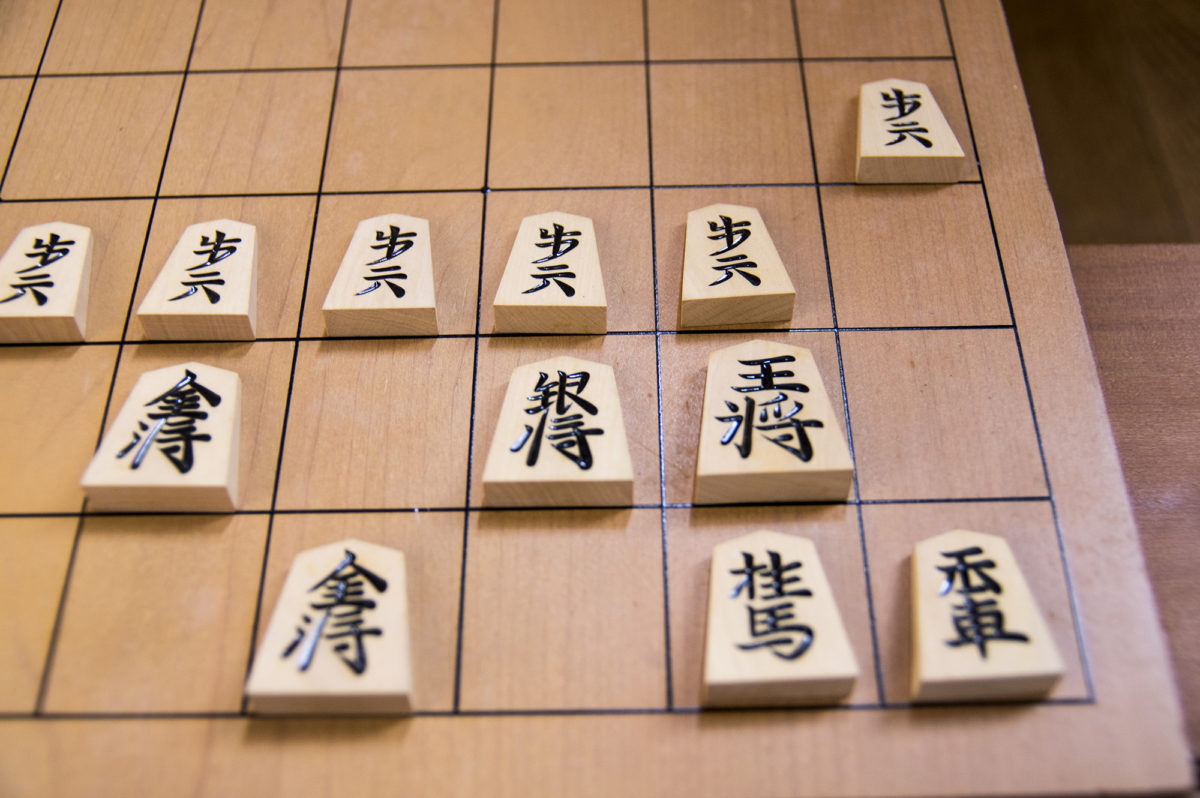 歩兵
歩兵
歩兵
歩兵
歩兵
歩兵
金将
銀将
王将
金将
桂馬
香車